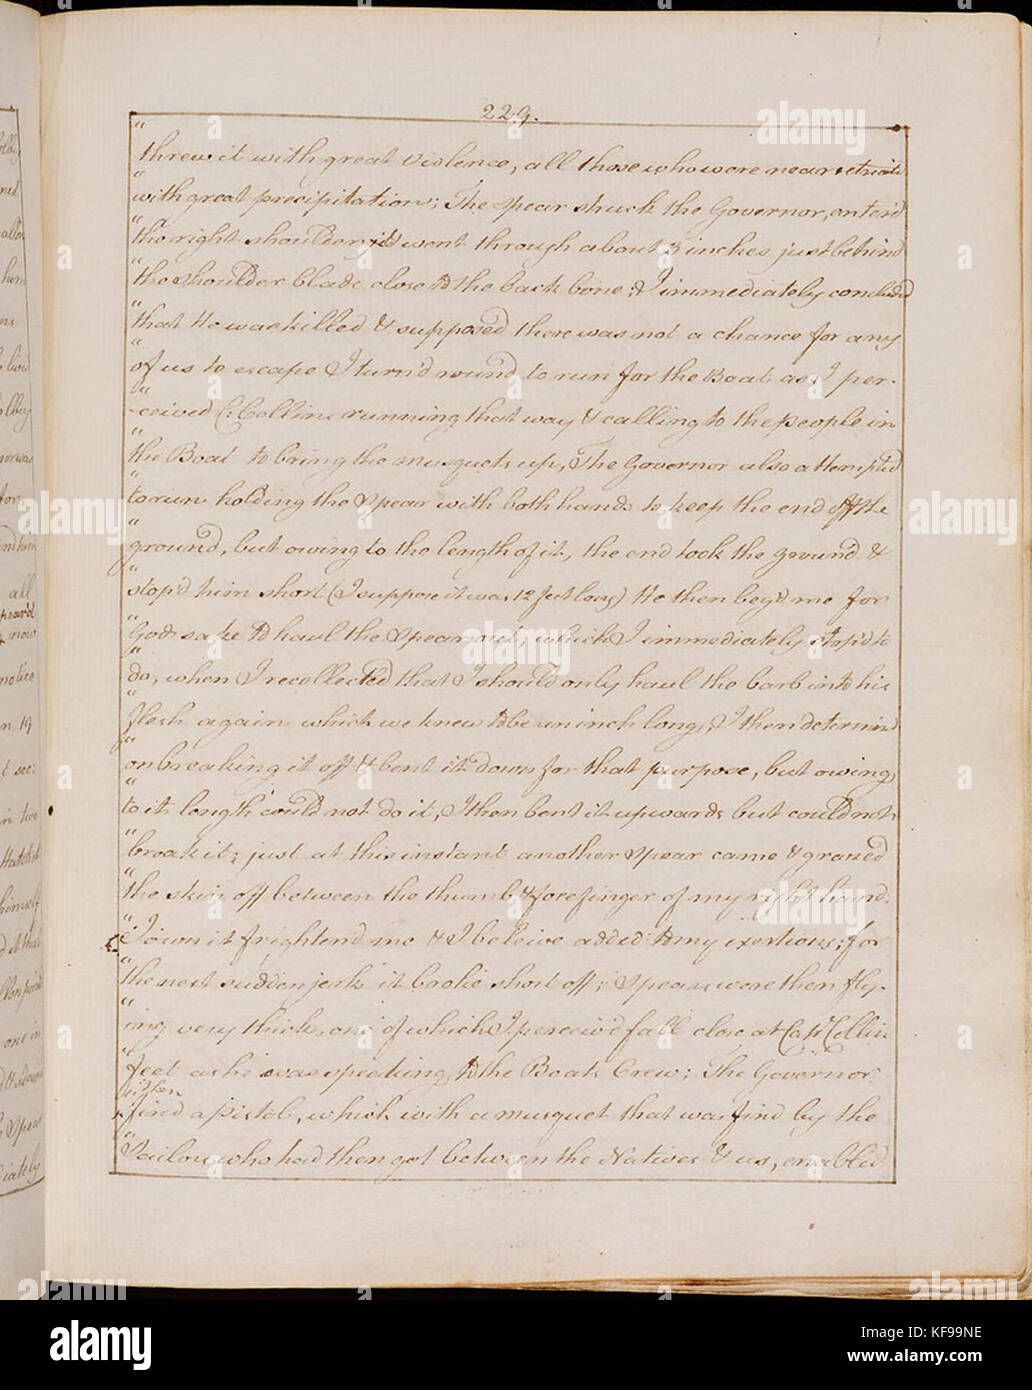 229.
"threw it with great violence, all those who were near retreated
"with great precipitation; The Spear struck the Governor, enter'd
"the right shoulder, & went through about 3 inches just behind
"the shoulder blade close to the back bone; I immediately concluded
"that He was killed & supposed there was not a chance for any
"of us to escape I turn'd round to run for the Boat as I per-
"-ceived C: Collins running that way & calling to the people in
"the Boat to bring the musquets up, The Governor also attempted
"to run holding the Spear with both hands to keep the end off the
"ground, but owing to the length of it, the end took the ground &
"stop'd him short (I suppose it was 12 feet long) He then beg'd me for
"Gods sake to haul the Spear out, which I immediately stop'd to
"do, when I recollected that I should only haul the barb into his
"flesh again which we knew to be an inch long, I then determin'd
"on breaking it off & bent it down for that purpose, but owing
"to it length could not do it, I then bent it upwards but could not
"break it; just at this instant another Spear came & grazed
"the skin off between the thumb & forefinger of my right hand.
"I own it frighten'd me & I beleive added to my exertions; for
"the next sudden jerk it broke short off; Spears were then fly-
"ing very thick, one of which I perceiv'd fall close at Capt. Collins
"feet as he was speaking to the Boats Crew; The Governor
"fired a Pistol, which with a musquet that was fired by the
"Sailor who had then got between the Natives & us, enabled
alamy
Image ID: KF99NE
www.alamy.com